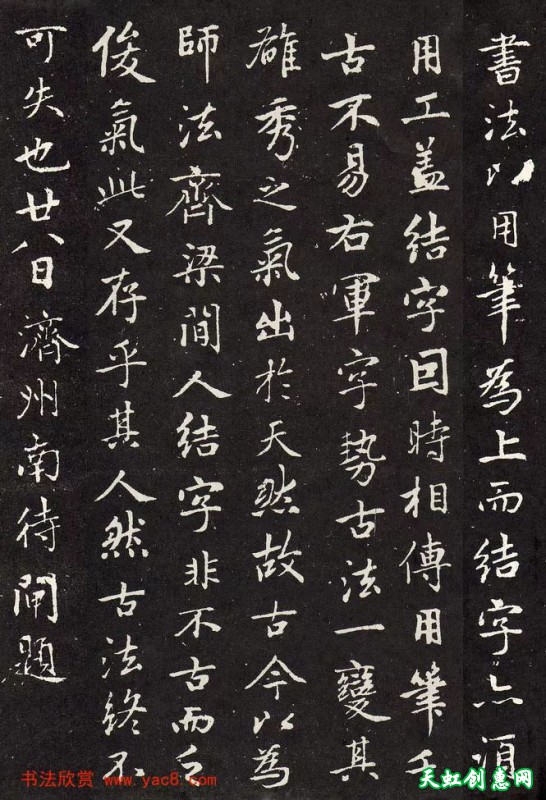 書法以用筆為上而结字亦須
用工盖结字因時相傳用筆千
古不易右軍字勢古法一變其
雄秀之氣出於天然故古今以為
師法齊梁間人结字非不古而乏
俊氣此又存乎其人然古法終不
可失也廿八日濟州南待閘題
书法欣赏 www.yac8.com
天虹创惠网